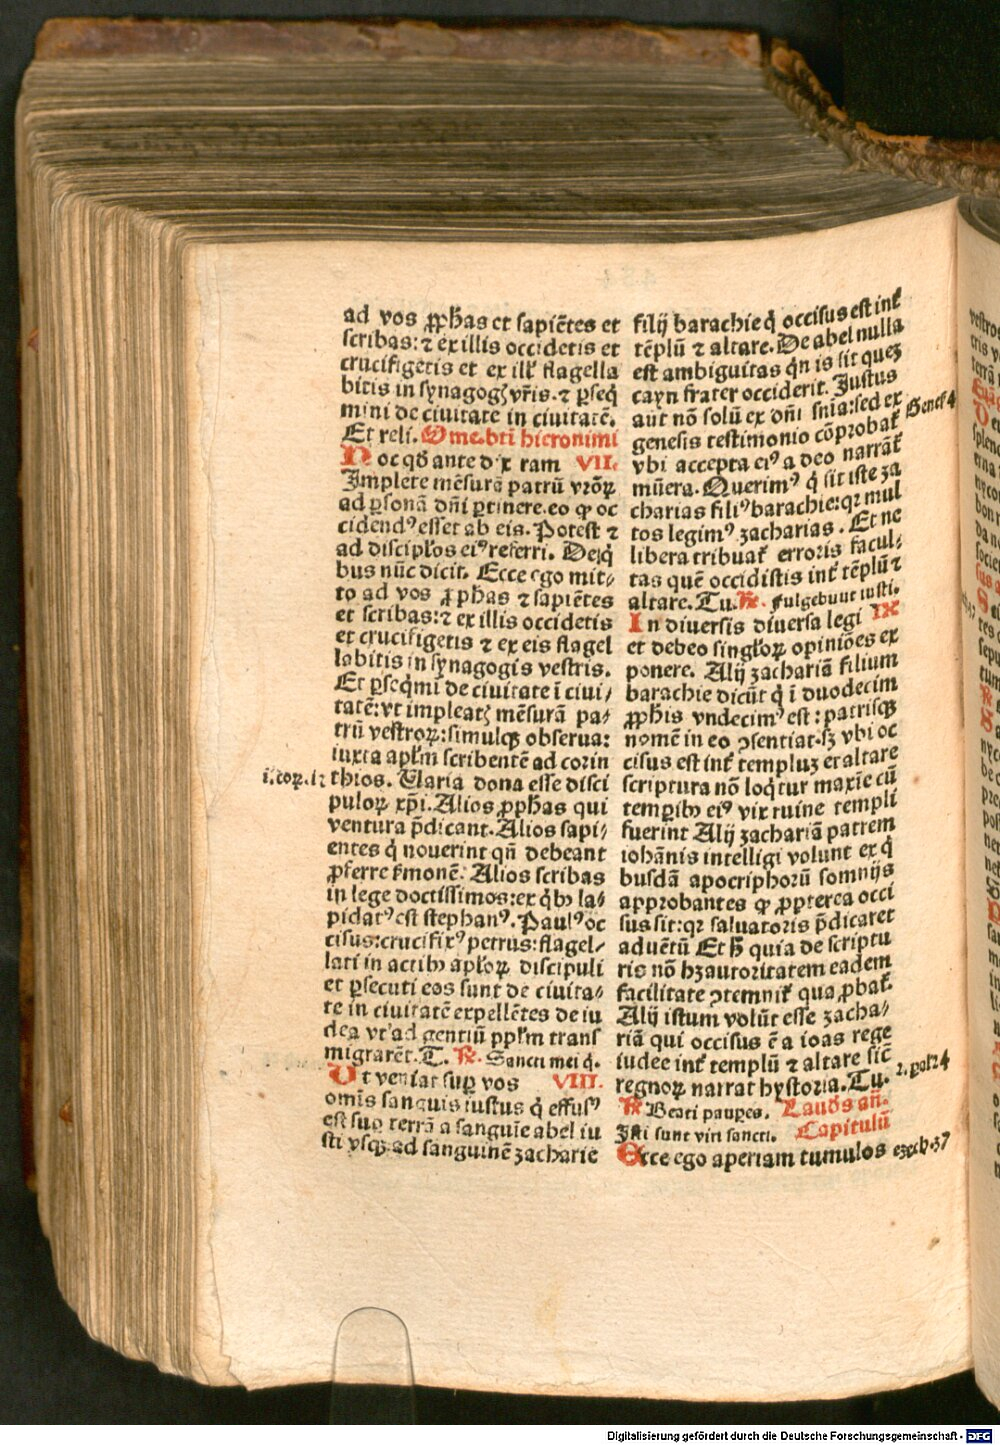 ad vos ꝓphas et sapiẽtes et
scribas: ⁊ ex illis occidetis et
crucifigetis et ex ill' flagella
bitis in synagogꝫ vr̃is. ⁊ ꝑseq̃
mini de ciuitate in ciuitatẽ.
Et reli. Ome. bti hieronimi
Hoc qđ ante dix ram VII.
Implete mẽsurã patrũ vrõꝝ
ad ꝑsonã dñi ꝑtinere. eo ꝙ oc
cidendꝰ esset ab eis. Potest ⁊
ad discipl'os eiꝰ referri. De q̃
bus nũc dicit. Ecce ego mit⸗
to ad vos ꝓphas ⁊ sapiẽtes
et scribas: ⁊ ex illis occidetis
et crucifigetis ⁊ ex eis flagel
labitis in synagogis vestris.
Et ꝑseq̃mi de ciuitate ĩ ciui⸗
tatẽ: vt impleatꝫ mẽsurã pa⸗
trũ vestroꝝ: simulqꝫ obserua:
iuxta apl'm scribentẽ ad corin
i. cor. 12 thios. Uaria dona esse disci
puloꝝ xp̃i. Alios ꝓphas qui
ventura p̃dicant. Alios sapi⸗
entes q̃ nouerint qñ debeant
ꝓferre s̃monẽ. Alios scribas
in lege doctissimos: ex q̃bꝫ la⸗
pidatꝰ est stephanꝰ. Paulꝰ oc
cisus: crucifixꝰ petrus: flagel⸗
lati in actibꝫ apl'oꝝ discipuli
et ꝑsecuti eos sunt de ciuita⸗
te in ciuitatẽ expellẽtes de iu
dea vt ad gentiũ ppl'm trans
migrarẽt. T. ℟. Sancti mei q̃.
Ut veniat suꝑ vos VIII.
omĩs sanguis iustus q̃ effusꝰ
est suꝑ terrã a sanguĩe abel iu
sti vsqꝫ ad sanguinẽ zacharie
filij barachie q̃ occisus est int'
tẽplũ ⁊ altare. De abel nulla
est ambiguitas q̃n is sit queꝫ
cayn frater occiderit. Justus
aut nõ solũ ex dñi snĩa: sed ex
genesis testimonio cõprobat' Genes' 4
vbi accepta eiꝰ a deo narrãt'
mũera. Querimꝰ q̃ sit iste za
charias filiꝰ barachie: qꝛ mul
tos legimꝰ zacharias. Et ne
libera tribuat' erroris facul⸗
tas quẽ occidistis int' tẽplũ ⁊
altare. Tu. ℟. Fulgebunt iusti.
In diuersis diuersa legi IX
et debeo singl'oꝝ opiniões ex
ponere. Alij zachariã filium
barachie dicũt q̃ ĩ duodecim
ꝓphis vndecimꝰ est: patrisqꝫ
nomẽ in eo ꝯsentiat. sꝫ vbi oc
cisus est int' templuꝫ et altare
scriptura nõ loq̃tur maxĩe cũ
tempĩbꝫ eiꝰ vix ruine templi
fuerint Alij zachariã patrem
iohãnis intelligi volunt ex q̃
busdã apocriphorũ somnijs
approbantes ꝙ ꝓpterea occi
sus sit: qꝛ saluatoris p̃dicaret
aduẽtũ Et h̃ quia de scriptu
ris nõ hꝫ autoritatem eadem
facilitate ꝯtemnit' qua ꝓbat'.
Alij istum volũt esse zacha⸗
riã qui occisus ẽ a ioas rege
iudee int' templũ ⁊ altare sic̃
regnoꝝ narrat hystoria. Tu. 2. pal' 24
℟ Beati pauꝑes. Laudʼs añ.
Isti sunt viri sancti. Capitulũ
Ecce ego aperiam tumulos ezech. 37
Digitalisierung gefördert durch die Deutsche Forschungsgemeinschaft - DFG